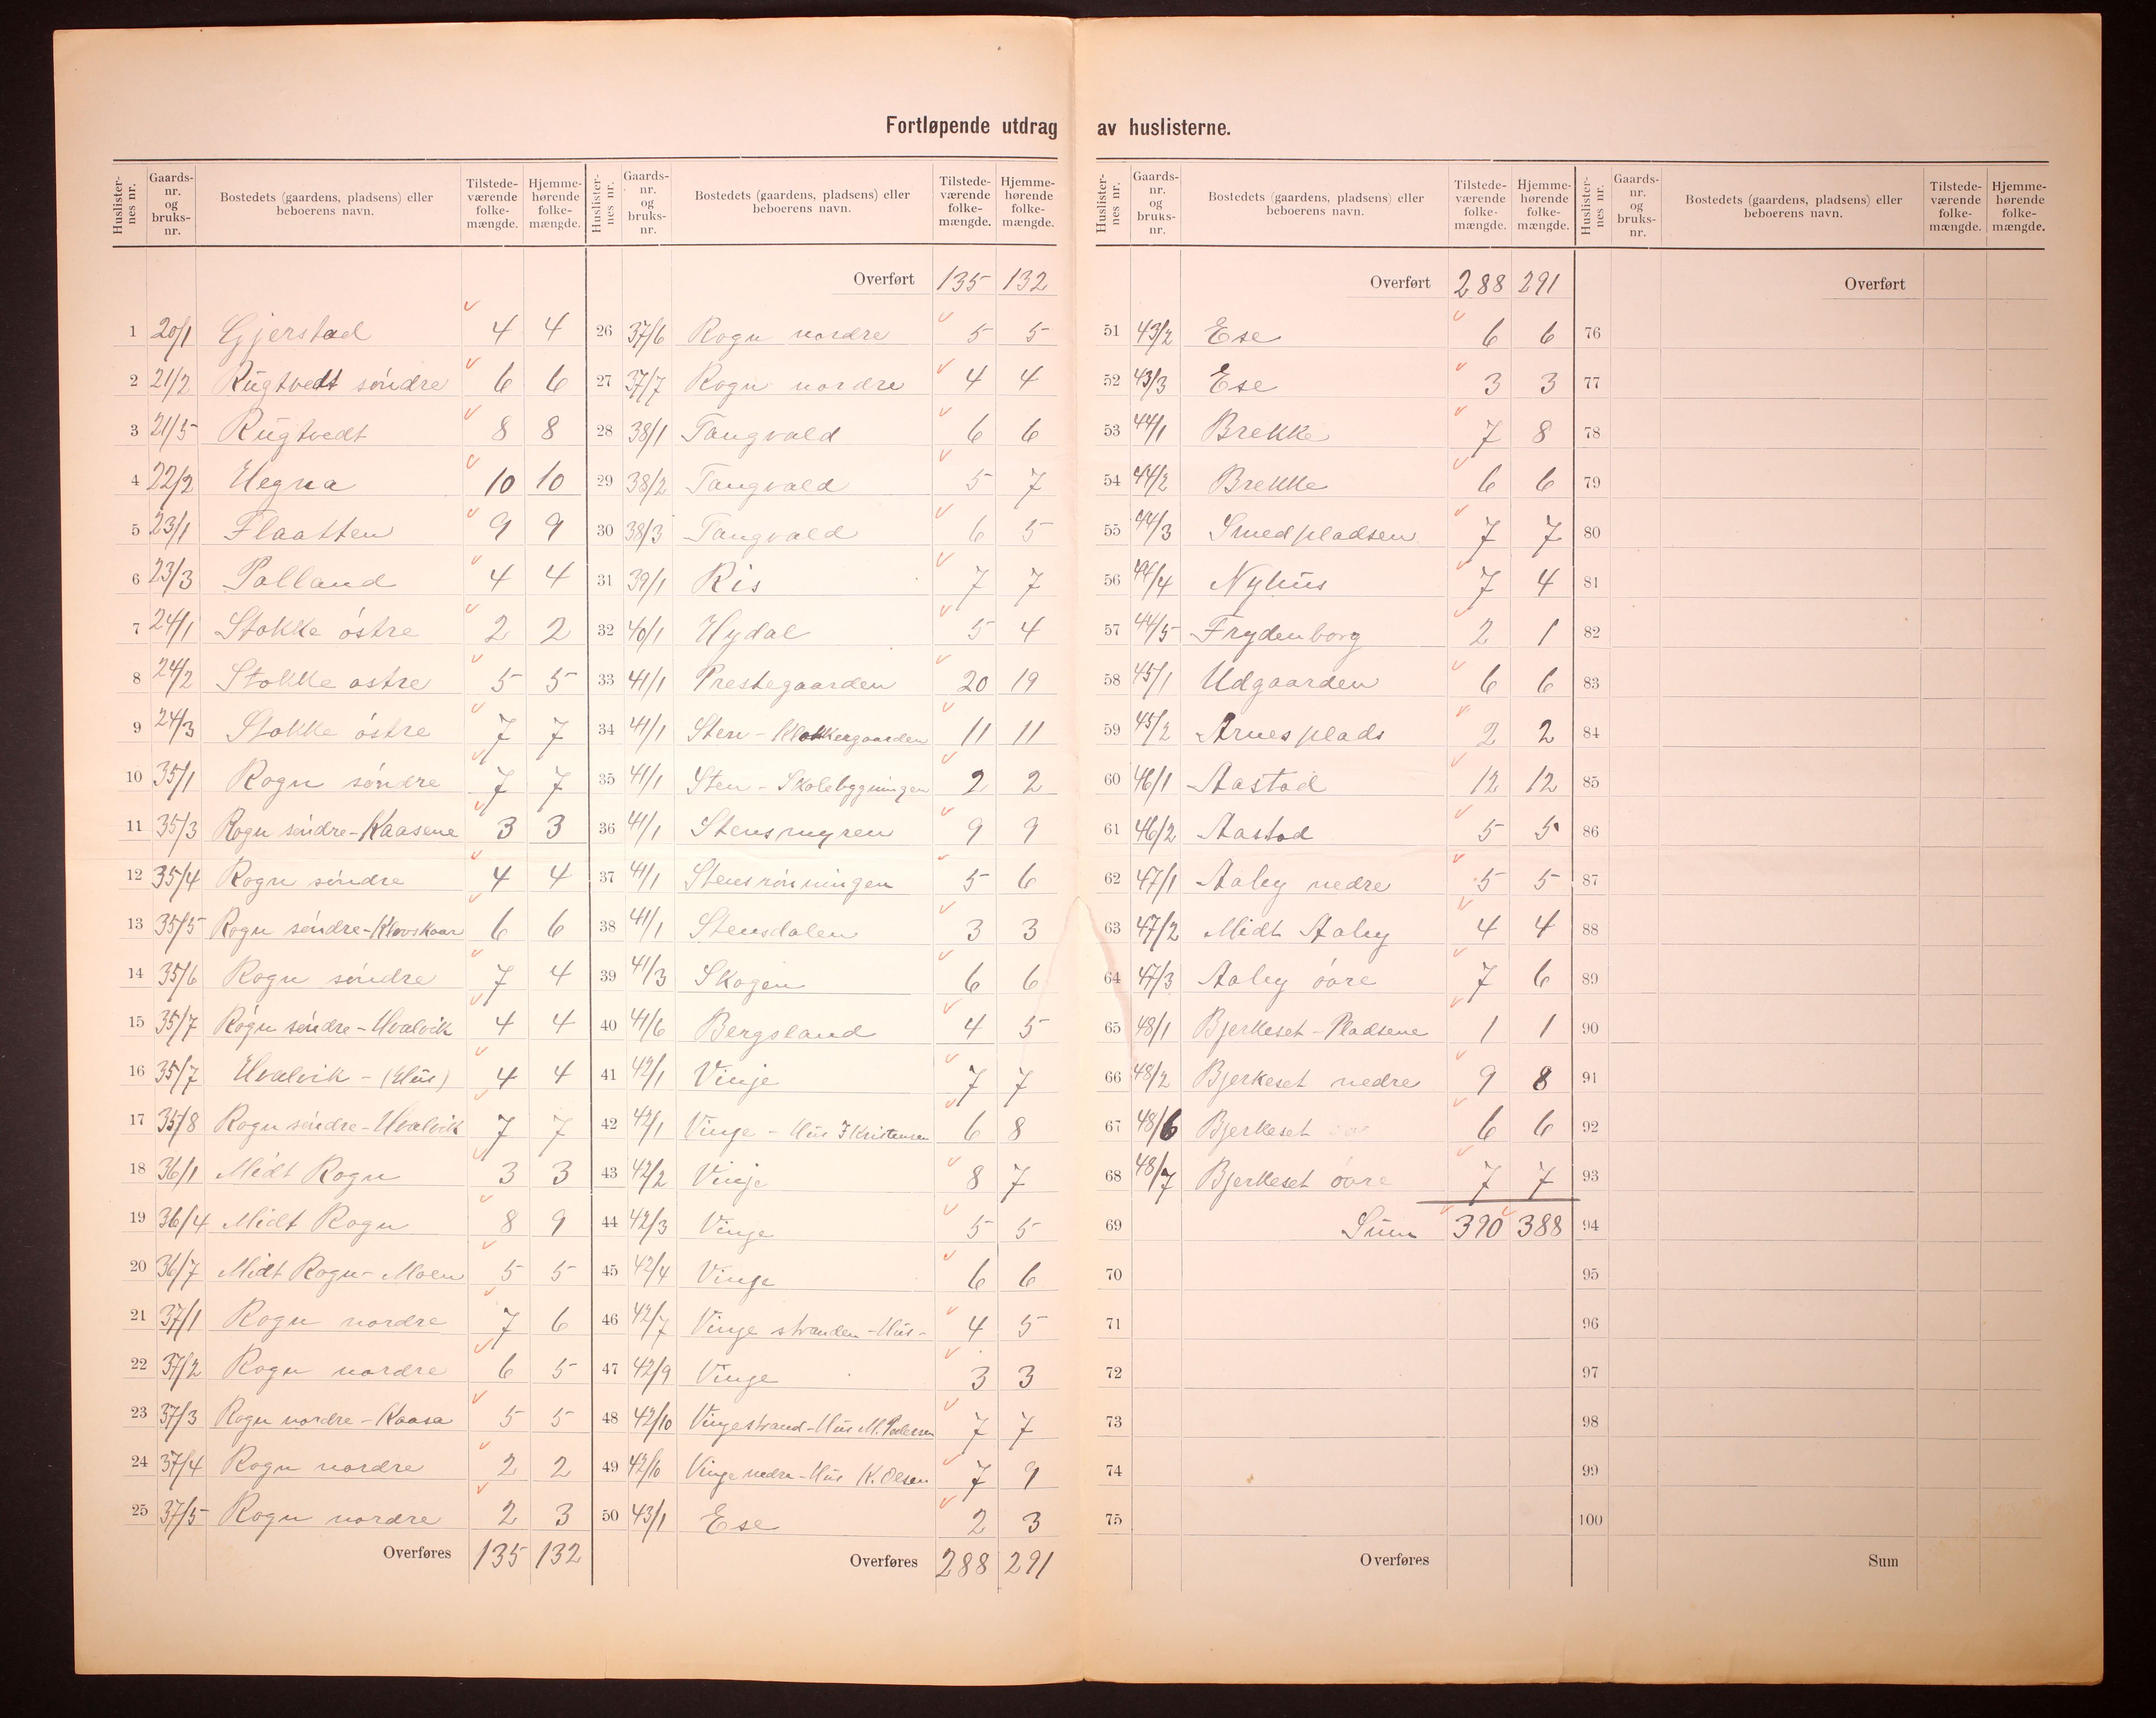 Fortløpende utdrag av huslisterne.
Huslister-nes nr. Gaards-nr. og bruks-nr. Bostedets (gaardens, pladsens) eller beboerens navn. Tilstede-værende folke-mængde. Hjemme-hørende folke-mængde.
1 20/1 Gjerstad 4 4
2 21/2 Rugtvedt søndre 6 6
3 21/5 Rugtvedt 8 8
4 22/2 Hegna 10 10
5 23/1 Flaatten 9 9
6 23/3 Palland 4 4
7 24/1 Stokke østre 2 2
8 24/2 Stokke østre 5 5
9 24/3 Stokke østre 7 7
10 35/1 Rogn søndre 7 7
11 35/3 Rogn søndre-Kaasene 3 3
12 35/4 Rogn søndre 4 4
13 35/5 Rogn søndre-Klovskaar 6 6
14 35/6 Rogn søndre 7 4
15 35/7 Rogn søndre-Hvalvik 4 4
16 35/7 Hvalvik - (Hus) 4 4
17 35/8 Rogn søndre-Hvalvik 7 7
18 36/1 Midt Rogn 3 3
19 36/4 Midt Rogn 8 9
20 36/7 Midt Rogn-Moen 5 5
21 37/1 Rogn nordre 7 6
22 37/2 Rogn nordre 6 5
23 37/3 Rogn nordre-Kaasa 5 5
24 37/4 Rogn nordre 2 2
25 37/5 Rogn nordre 2 3
Overføres 135 132
Huslister-nes nr. Gaards-nr. og bruks-nr. Bostedets (gaardens, pladsens) eller beboerens navn. Tilstede-værende folke-mængde. Hjemme-hørende folke-mængde.
Overført 135 132
26 37/6 Rogn nordre 5 5
27 37/7 Rogn nordre 4 4
28 38/1 Tangvald 6 6
29 38/2 Tangvald 5 7
30 38/3 Tangvald 6 5
31 39/1 Ris 7 7
32 40/1 Hydal 5 4
33 41/1 Prestegaarden 20 19
34 41/1 Sten-Klokkergaarden 11 11
35 41/1 Sten-Skolebygningen 2 2
36 41/1 Stensmyren 9 9
37 41/1 Stensrønningen 5 6
38 41/1 Stensdalen 3 3
39 41/3 Skogen 6 6
40 41/6 Bergsland 4 5
41 42/1 Vinje 7 7
42 42/1 Vinge - Hus J Kristensen 6 8
43 42/2 Vinje 8 7
44 42/3 Vinge 5 5
45 42/4 Vinge 6 6
46 42/7 Vinge stranden-Hus- 4 5
47 42/9 Vinge 3 3
48 42/10 Vingestrand-Hus M. Pedersen 7 7
49 42/10 Vinge nedre-Hus K. Olsen 7 9
50 43/1 Ese 2 3
Overføres 288 291
Huslister-nes nr. Gaards-nr. og bruks-nr. Bostedets (gaardens, pladsens) eller beboerens navn. Tilstede-værende folke-mængde. Hjemme-hørende folke-mængde.
Overført 288 291
51 43/2 Ese 6 6
52 43/3 Ese 3 3
53 44/1 Brekke 7 8
54 44/2 Brekke 6 6
55 44/3 Smedpladsen 7 7
56 44/4 Nyhus 7 4
57 44/5 Frydenborg 2 1
58 45/1 Udgaarden 6 6
59 45/2 Arnesplads 2 2
60 46/1 Aastad 12 12
61 46/2 Aastad 5 5
62 47/1 Aaby nedre 5 5
63 47/2 Midt Aaby 4 4
64 47/3 Aaby øvre 7 6
65 48/1 Bjerkeset-Pladsene 1 1
66 48/2 Bjerkeset nedre 9 8
67 48/6 Bjerkeset 6 6
68 48/7 Bjerkeset øvre 7 7
69 Sum 390 388
70
71
72
73
74
75
Overføres
Huslister-nes nr. Gaards-nr. og bruks-nr. Bostedets (gaardens, pladsens) eller beboerens navn. Tilstede-værende folke-mængde. Hjemme-hørende folke-mængde.
Overført
76
77
78
79
80
81
82
83
84
85
86
87
88
89
90
91
92
93
94
95
96
97
98
99
100
Sum